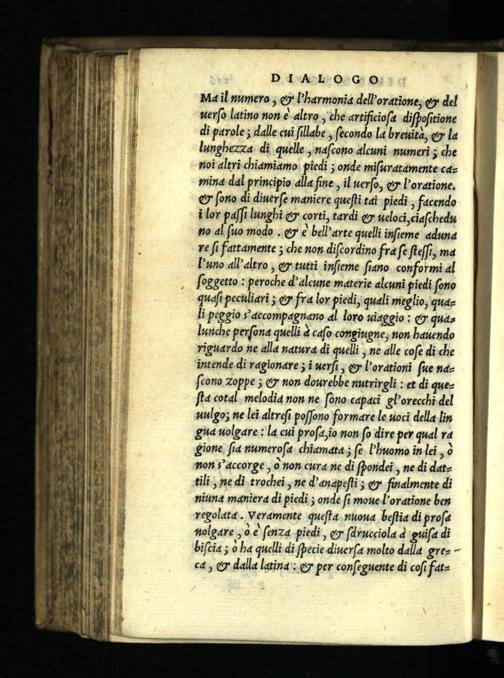 DIALOGO
Ma il numero, & l'harmonia dell'oratione, & del
uerso latino non è altro, che artificiosa dispositione
di parole; dalle cui sillabe, secondo la breuità, & la
lunghezza di quelle, nascono alcuni numeri; che
noi altri chiamiamo piedi; onde misuratamente ca=
mina dal principio alla fine, il uerso, & l'oratione.
& sono di diuerse maniere questi tai piedi, facendo
i lor passi lunghi & corti, tardi & ueloci, ciaschedu
no al suo modo. & è bell'arte quelli insieme aduna
re si fattamente; che non discordino fra se stessi, ma
l'uno all'altro, & tutti insieme siano conformi al
soggetto: peroche d'alcune materie alcuni piedi sono
quasi peculiari; & fra lor piedi, quali meglio, qua=
li peggio s'accompagnano al loro uiaggio: & qua=
lunche persona quelli à caso congiugne, non hauendo
riguardo ne alla natura di quelli, ne alle cose di che
intende di ragionare; i uersi, & l'orationi sue na=
scono zoppe; & non dourebbe nutrirgli: et di que=
sta cotal melodia non ne sono capaci gl'orecchi del
uulgo; ne lei altresi possono formare le uoci della lin
gua uolgare: la cui prosa, io non so dire per qual ra
gione sia numerosa chiamata; se l'huomo in lei, ò
non s'accorge, ò non cura ne di spondei, ne di dat=
tili, ne di trochei, ne d'anapesti; & finalmente di
niuna maniera di piedi; onde si moue l'oratione ben
regolata. Veramente questa nuoua bestia di prosa
uolgare, ò è senza piedi, & sdrucciola à guisa di
biscia; ò ha quelli di specie diuersa molto dalla gre=
ca, & dalla latina: & per conseguente di cosi fat=